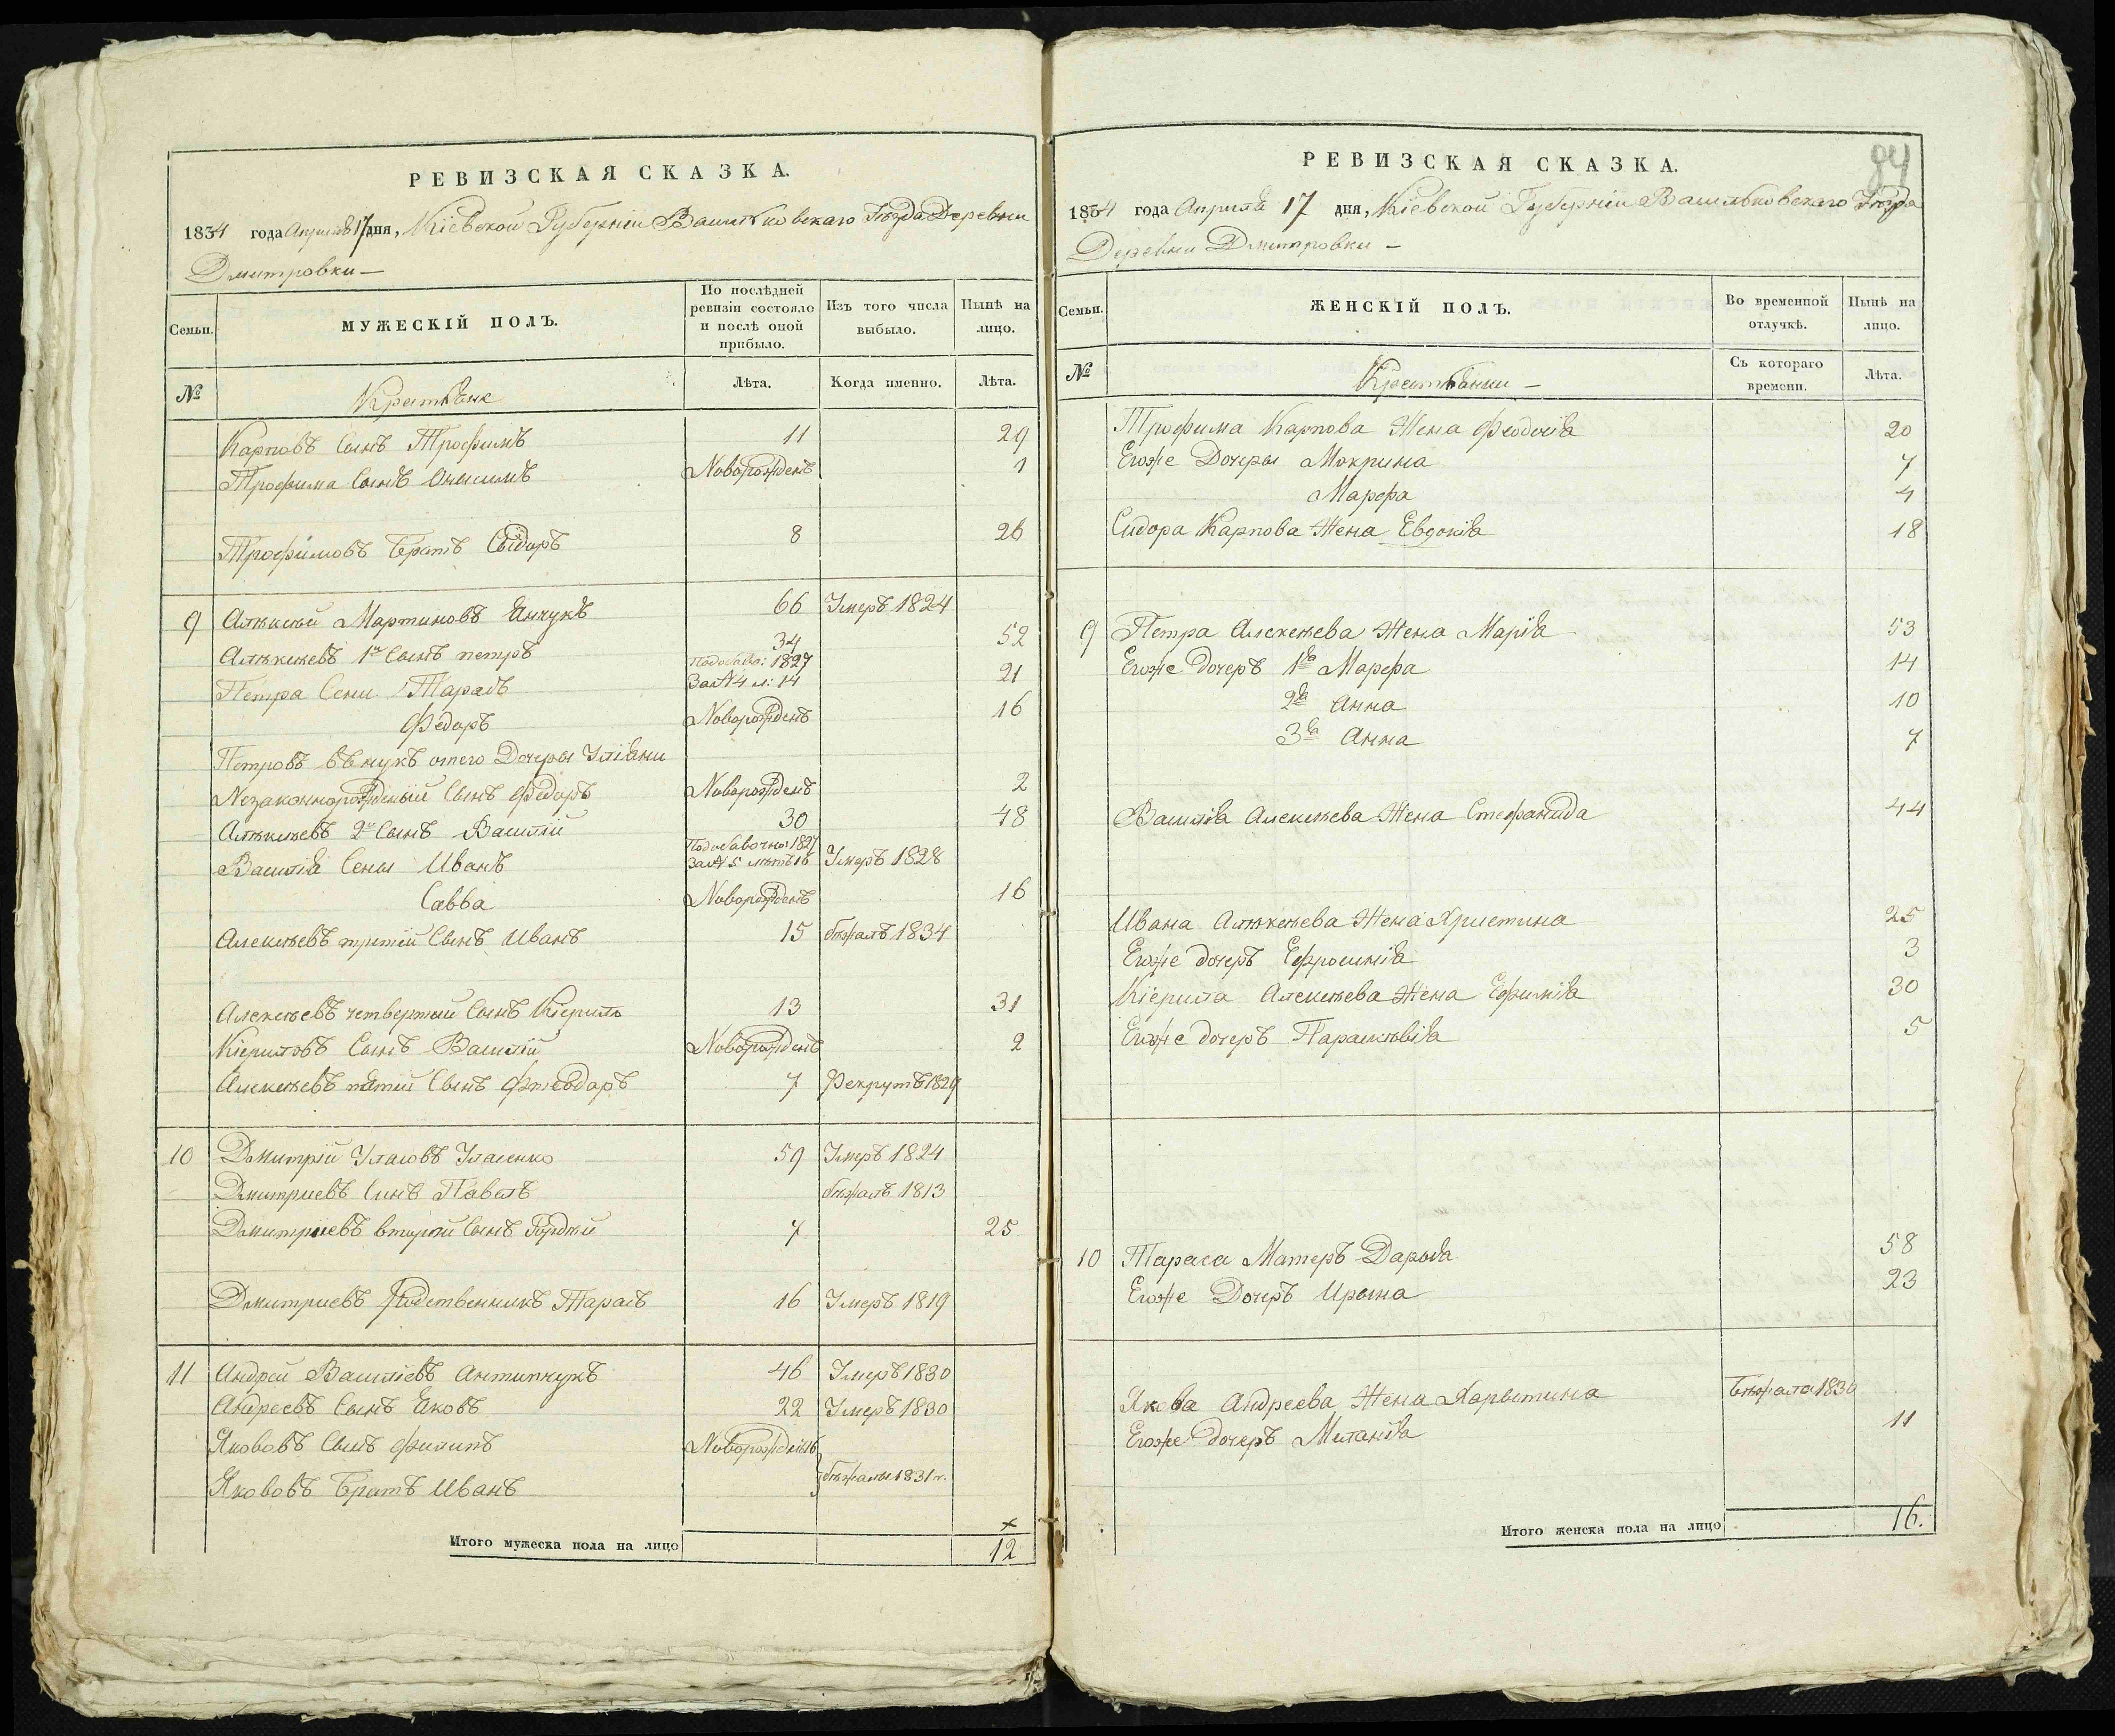 РЕВИЗСКАЯ СКАЗКА.
1834 года Априля 17 дня, Кіевской Губерніи Васильковскаго Уѣзда Деревни
Дмитровки —
Семьи.
МУЖЕСКІЙ ПОЛЪ.
По послѣдней ревизіи состояло и послѣ оной прибыло.
Изъ того числа выбыло.
Нынѣ на лицо.
№
Крестьяне
Лѣта.
Когда именно.
Лѣта.
Карповъ Сынъ Трофимъ 11 29
Трофима Сынъ Онысимъ Новорожденъ 1
Трофимовъ братъ Сыдоръ 8 26
9 Алѣксѣй Мартиновъ Янчукъ 66 Умеръ 1824
Алѣксѣевъ 1й Сынъ петръ 34 52
Петра Сены Тарасъ Подобавоч: 1827 За № 4 л: 14 21
Федоръ Новорожденъ 16
Петровъ вънукъ отего Дочеры Уліяны
Незаконнорожденый Сынъ Федоръ Новорожденъ 2
Алѣксѣевъ 2й Сынъ Василій 30 48
Василія Сены Иванъ Подобавочно: 1827 За № 5 лѣтъ 16 Умеръ 1828
Савва Новорожденъ 16
Алексѣевъ третій Сынъ Иванъ 15 бѣжалъ 1834
Алексѣевъ четвертый Сынъ Кіерило 13 31
Кіериловъ Сынъ Василій Новорожденъ 2
Алексѣевъ пятій Сынъ Фтеодоръ 7 Рекрутъ 1829
10 Дмитрій Уласовъ Уласенко 59 Умеръ 1824
Дмитриевъ Синъ Павелъ бѣжалъ 1813
Дмитриевъ второй Сынъ Гордѣй 7 25
Дмитриевъ Родственникъ Тарасъ 16 Умеръ 1819
11 Андрей Василіевъ Антипчукъ 46 Умеръ 1830
Андреевъ Сынъ Яковъ 22 Умеръ 1830
Яковъ Сынъ Филипъ Новорожденъ
Якововъ братъ Иванъ бѣжалы 1831 г.
Итого мужеска пола на лицо 12
84
РЕВИЗСКАЯ СКАЗКА.
1834 года Априля 17 дня, Кіевской Губерніи Васильковскаго Уѣзда
Деревни Дмитровки —
Семьи.
ЖЕНСКІЙ ПОЛЪ.
Во временной отлучкѣ.
Нынѣ на лицо.
№
Крестьянки —
Съ котораго времени.
Лѣта.
Трофима Карпова Жена Феодосія 20
Егоже Дочеры Мокрина 7
Марфа 4
Сидора Карпова Жена Евдокія 18
9 Петра Алексѣева Жена Марія 53
Егоже дочеръ 1я Марфа 14
2я Анна 10
3я Анна 7
Василія Алексѣева Жена Стефанида 44
Ивана Алѣксѣева Жена Христина 25
Егоже дочеръ Ефросинія 3
Кіерила Алексѣева Жена Ефимія 30
Егоже дочеръ Параскѣвія 5
10 Тараса Матеръ Дарыя 58
Егоже Дочеръ Ирына 23
Якова Андреева Жена Харытина бѣжала 1830
Егоже дочеръ Миланія 11
Итого женска пола на лицо 16.